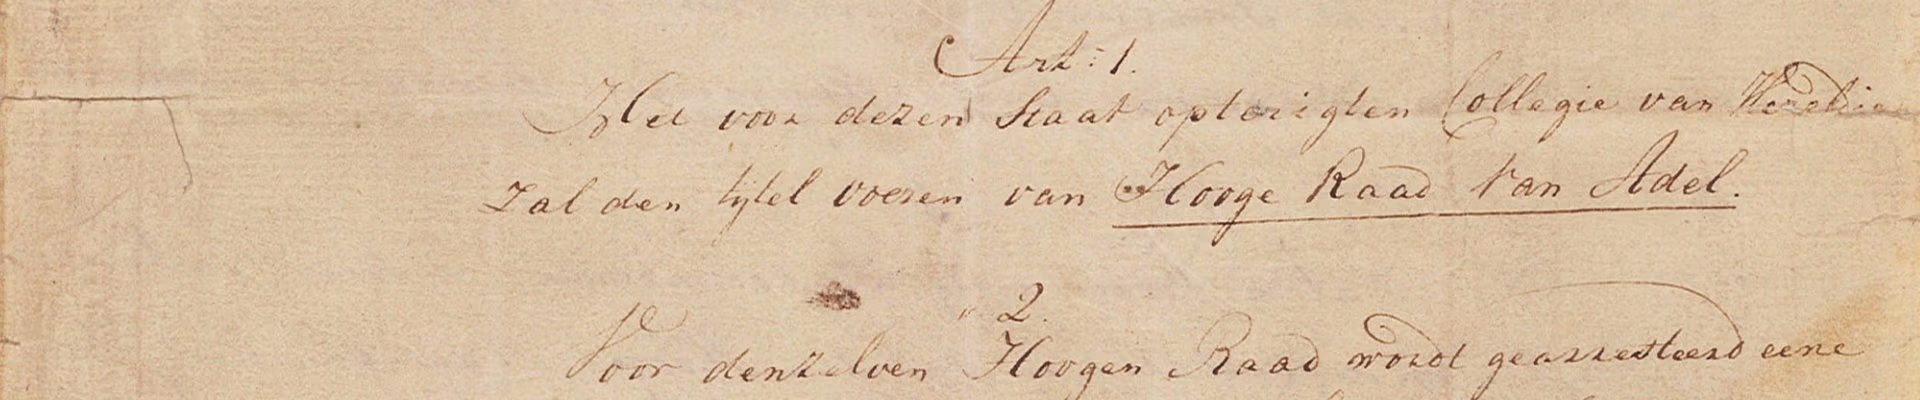 Art: 1.
Het voor dezen Staat opterigten Collegie van Heraldie
zal den tijtel voeren van Hooge Raad van Adel.
" 2.
Voor denzelven Hoogen Raad wordt gearresteerd eene